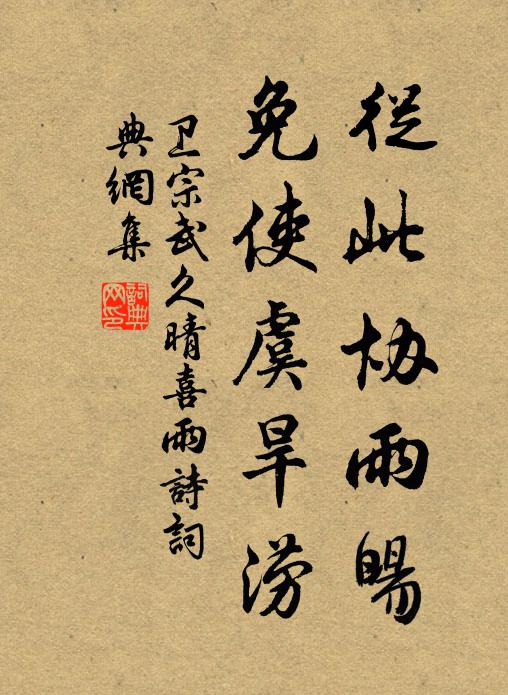 從此协雨暘
免使虞旱涝
卫宗武久晴喜雨詩詞
典網集
詞典網印